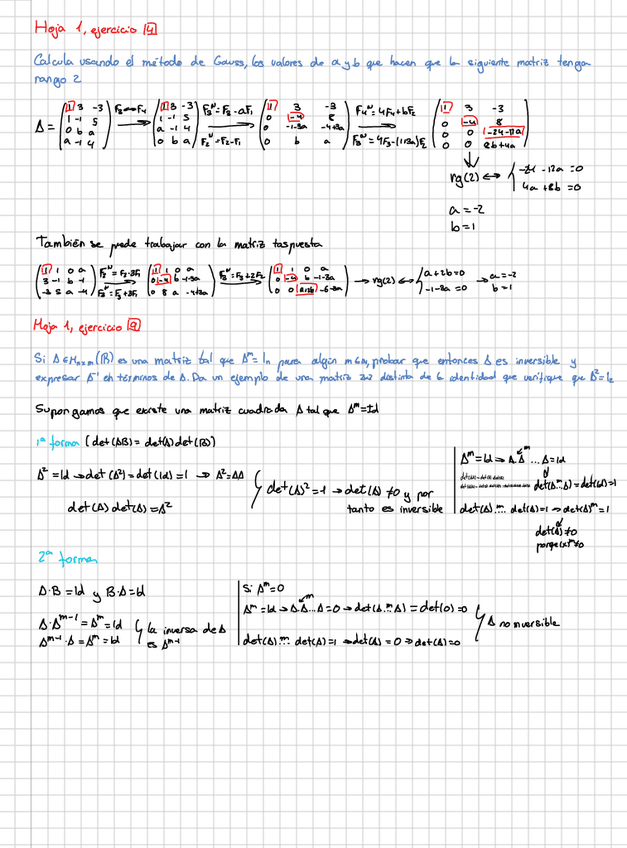 Hoja 1, ejercicio 4
Calcula usando el método de Gauss, los valores de a y b que hacen que la siguiente matriz tenga
rango 2
A = (1 3 -3; 1 -1 5; 0 b a; a -1 4) F3↔F4 → (1 3 -3; 1 -1 5; a -1 4; 0 b a) F3ᴺ=F3-aF1 F2ᴺ=F2-F1 → (1 3 -3; 0 -4 8; 0 -1-3a -4+3a; 0 b a) F4ᴺ=4F4+bF2 F3ᴺ=4F3-(1+3a)F2 → (1 3 -3; 0 -4 8; 0 0 -24-12a; 0 0 8b+4a)
rg(2) ↔ { -24-12a=0
4a+8b=0
a=-2
b=1
También se puede trabajar con la matriz traspuesta
(1 1 0 a; 3 -1 b -1; -3 5 a 4) F2ᴺ=F2-3F1 F3ᴺ=F3+3F1 → (1 1 0 a; 0 -4 b -1-3a; 0 8 a 4+3a) F3ᴺ=F3+2F2 → (1 1 0 a; 0 -4 b -1-3a; 0 0 a+2b) → rg(2) ↔ { a+2b=0 → a=-2
b=1
Hoja 1, ejercicio 9
Si A∈Mnxn(ℝ) es una matriz tal que Aᵐ=In para algún m∈ℕ, probar que entonces A es inversible y
expresar A⁻¹ en términos de A. Da un ejemplo de una matriz 2x2 distinta de la identidad que verifique que A²=I2
Supongamos que existe una matriz cuadrada A tal que Aᵐ=Id
1ª forma (det(AB)=det(A)det(B))
A²=Id → det(A²)=det(Id)=1 → A²=AA
det(A)det(A)=A²
det(A)²=1 → det(A)≠0 y por
tanto es inversible
Aᵐ=Id → A·A ᵐ... A=Id
det(A·ᵐ·A)=det(Id)=1
det(A).ᵐ. det(A)=1 → det(A)ᵐ=1
det(A)≠0
porque
2ª forma
A·B=Id y B·A=Id
A·Aᵐ⁻¹=Aᵐ=Id
Aᵐ⁻¹·A=Aᵐ=Id
la inversa de A
es Aᵐ⁻¹
Si Aᵐ=0
Aᵐ=Id → A·A ᵐ... A=0 → det(A.ᵐ.A)=det(0)=0
det(A).ᵐ. det(A)=1 → det(A)=0 → det(A)=0
A no inversible